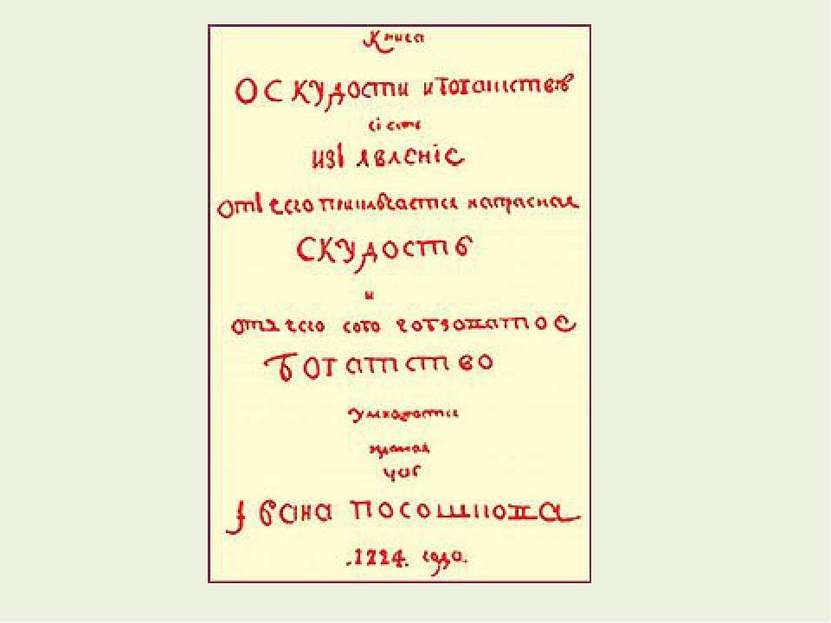 Книга
О СКУДОСТИ и богатстве
сі есть
изъявленіе
отъ чего приключается напрасная
СКУДОСТЬ
и
отъ чего
БОГАТСТВО
умножается
Івана ПОСОШКОВА
.1724. года.